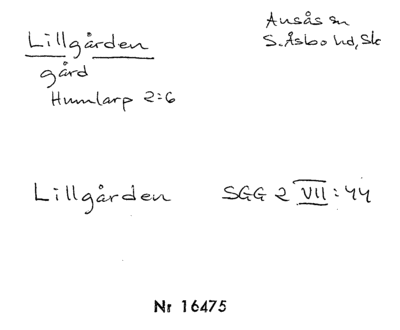 Lillgården
Ausås sn
S. Åsbo hd, Sk
gård
Humlarp 2:6
Lillgården SGG 2 VII:44
Nr 16475